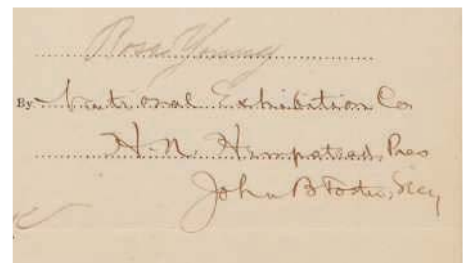 Ross Young
By National Exhibition Co
H. N. Hempstead, Pres
John B Foster, Secy